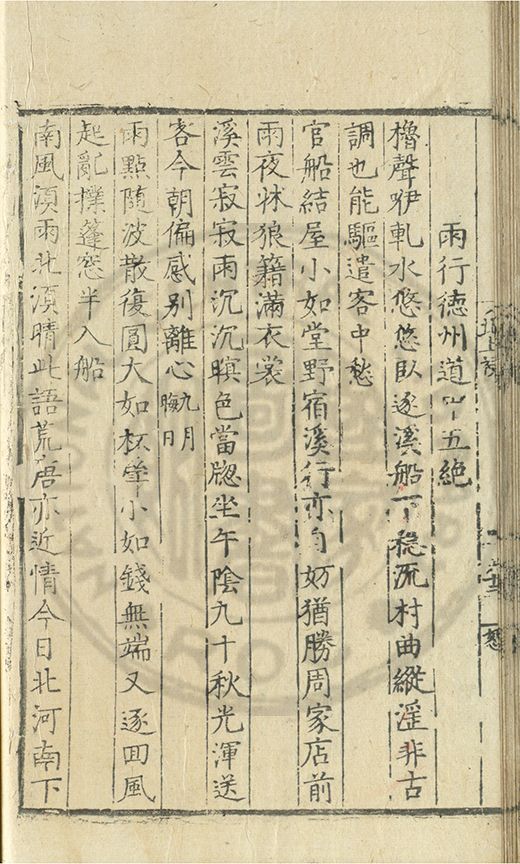 雨行徳州道中五絶
櫓聲咿軋水悠悠臥逐溪船下穏流村曲縱淫非古
調也能驅遣客中愁
官船結屋小如堂野宿溪行亦自妨猶勝周家店前
雨夜牀狼籍滿衣裳
溪雲寂寂雨沉沉暝色當牕坐午陰九十秋光渾送
客今朝偏感别離心九月晦日
雨點隨波散復圓大如杯斝小如錢無端又逐回風
起亂撲蓬窓半入船
南風湏雨北湏晴此語荒唐亦近情今日北河南下